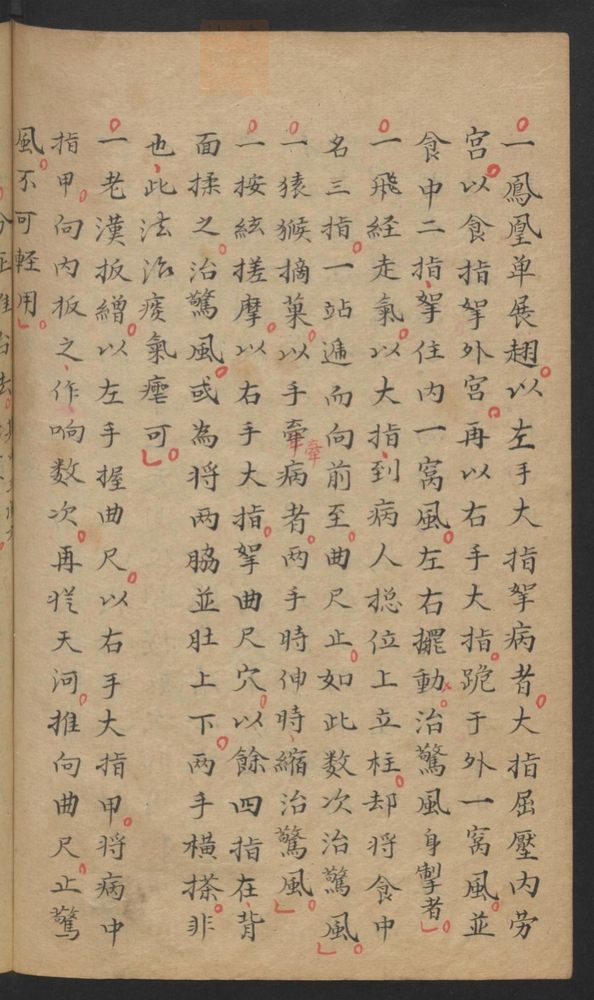 一鳳凰單展翅以左手大指拏病者大指屈壓內劳
宫以食指拏外宫再以右手大指跪于外一窩風並
食中二指拏住内一窩風左右擺動治驚風身掣者
一飛経走氣以大指到病人捴位上立柱却将食中
名三指一站遞而向前至曲尺止如此数次治驚風
一猿猴摘菓以手牽病者两手時伸時縮治驚風
一按絃搓摩以右手大指拏曲尺穴以餘四指在背
面揉之治驚風或為将两脇並肚上下两手横搽非
也此法治痰氣壅可
一老漢扳繒以左手握曲尺以右手大指甲将病中
指甲向内扳之作响数次再從天河推向曲尺止驚
風不可軽用